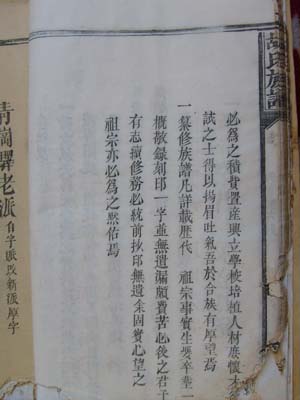 胡氏族譜
必為之積費置產興立學校培植人材庶懷才
試之士得以揚眉吐氣吾於合族有厚望焉
一纂修族譜凡詳載歷代 祖宗事實生娶卒葬一
概敬錄刻印一字並無遺漏願費苦必後之君子
有志續修務必統前抄印無遺余固實心望之
祖宗亦必為之默佑焉
青岡驛老派 自字派改新派厚字